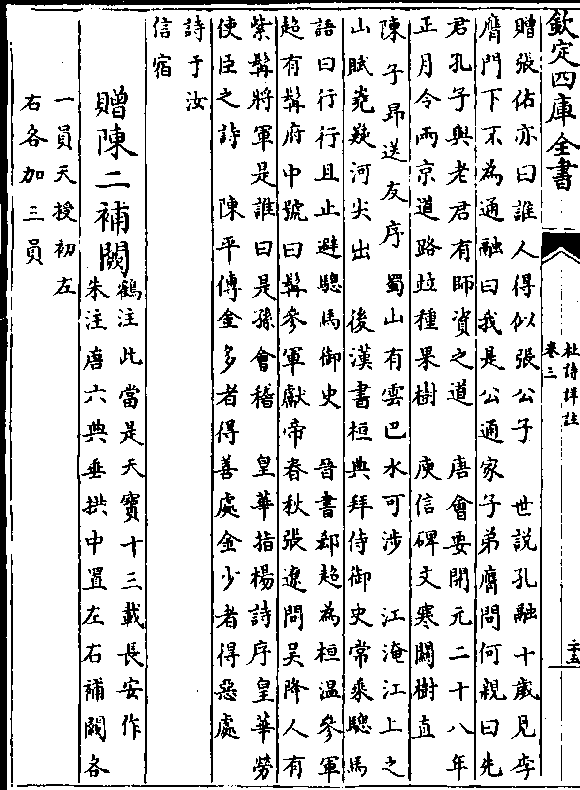 欽定四庫全書
杜詩詳註
卷三
二十五
贈張佑亦曰誰人得似張公子　世説孔融十歲見李
膺門下不為通融曰我是公通家子弟膺問何親曰先
君孔子與老君有師資之道　唐會要開元二十八年
正月令兩京道路並種果樹　庾信碑文寒關樹直
陳子昻送友序　蜀山有雲巴水可涉　江淹江上之
山賦嶤嶷河尖出　後漢書桓典拜侍御史常乘驄馬
語曰行行且止避驄馬御史　晉書郄超為桓温參軍
超有髯府中號曰髯參軍獻帝春秋張遼問吳降人有
紫髯將軍是誰曰是孫會稽　皇華指楊詩序皇華勞
使臣之詩　陳平傳金多者得善處金少者得惡處
詩于汝
信宿
贈陳二補闕
鶴注此當是天寶十三載長安作
朱注唐六典垂拱中置左右補闕各
一員天授初左
右各加三員